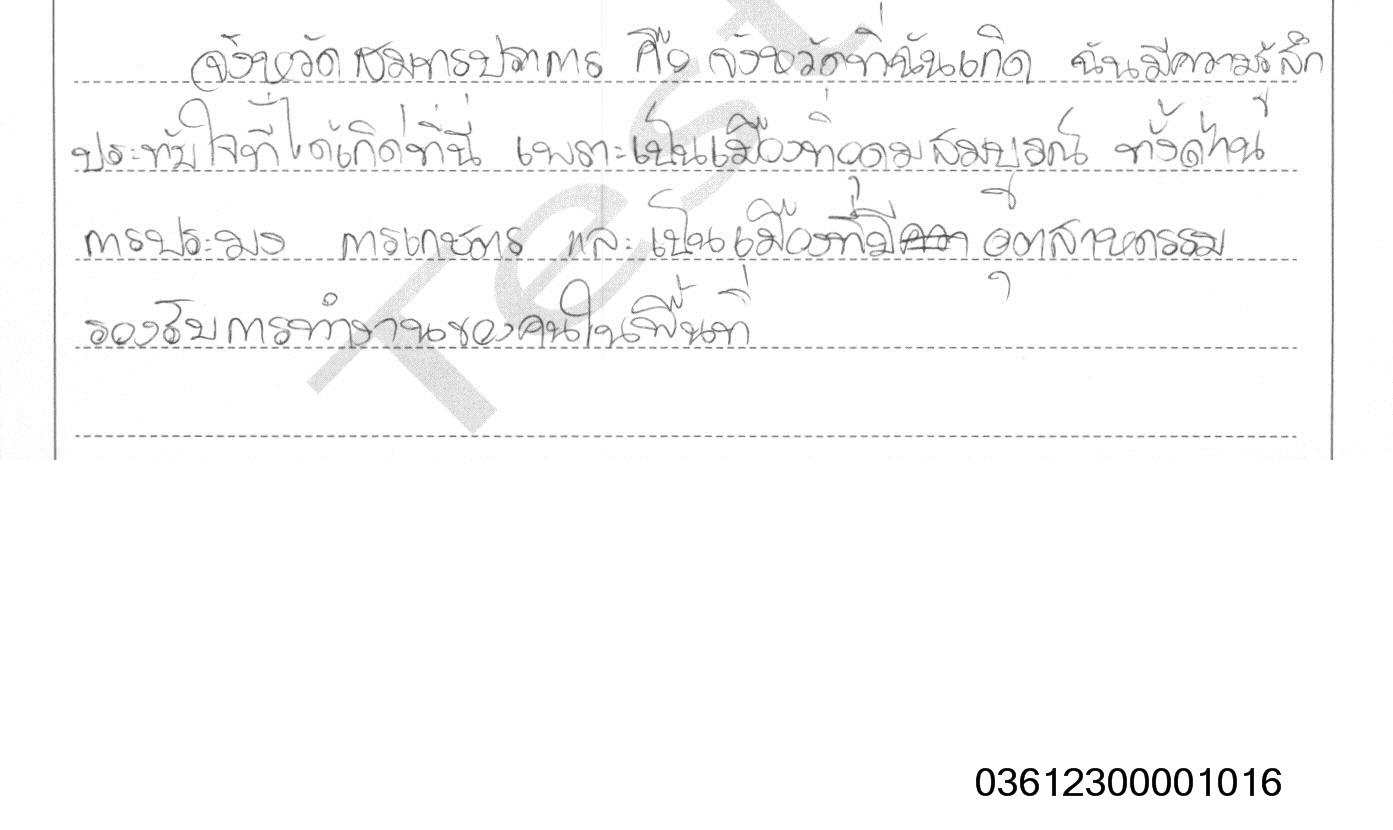 จังหวัดสมุทรปราการ คือ จังหวัดที่ฉันเกิด ฉันมีความรู้สึก
ประทับใจที่ได้เกิดที่นี่ เพราะเป็นเมืองที่อุดมสมบูรณ์ ทั้งด้าน
การประมง การเกษตร และเป็นเมืองที่มี อุตสาหกรรม
รองรับการทำงานของคนในพื้นที่
Test
03612300001016